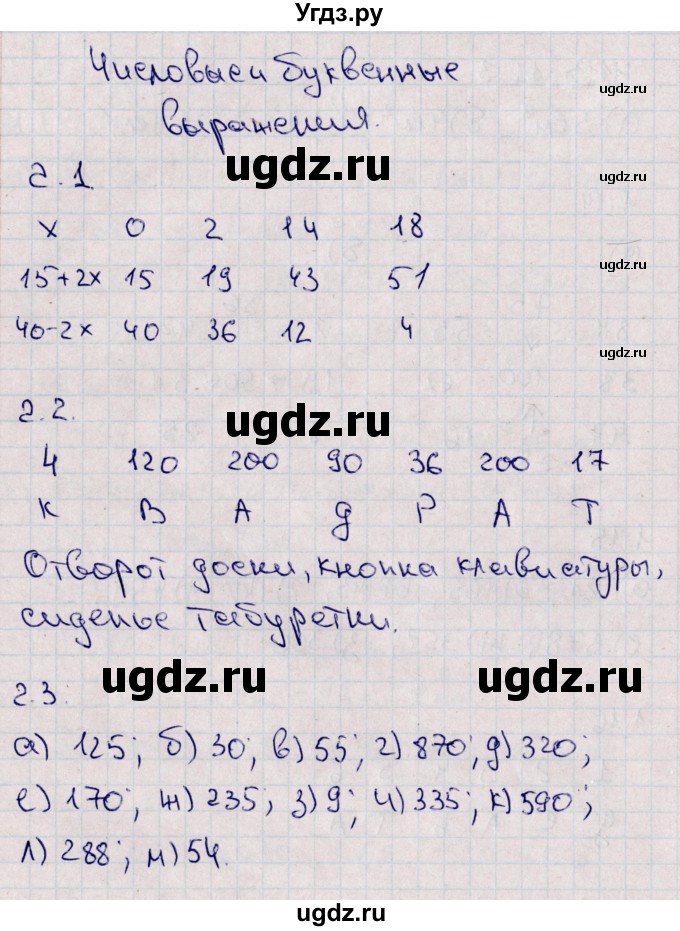 Угдз.ру
Числовые и буквенные
ugdz.ru
выражения.
ugdz.ru
2.1.
ugdz.ru
x 0 2 14 18
ugdz.ru
15+2x 15 19 43 51
40-2x 40 36 12 4
ugdz.ru
2.2.
ugdz.ru
4 120 200 90 36 200 17
К В А Д Р А Т
Отворот доски, кнопка клавиатуры,
сиденье табуретки.
2.3.
ugdz.ru ugdz.ru
а) 125; б) 30; в) 55; г) 870; д) 320;
е) 170; ж) 235; з) 9; и) 335; к) 590;
л) 288; м) 54.
ugdz.ru